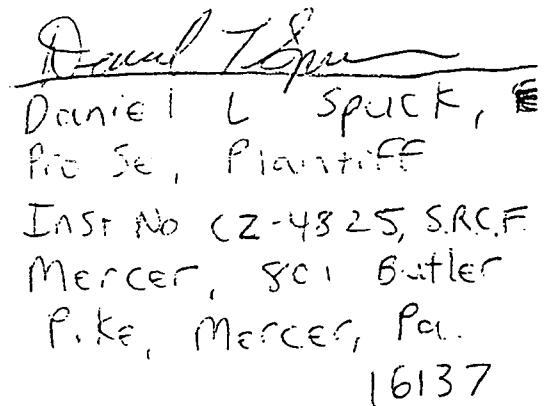 Daniel L Spuck
Daniel L Spuck,
Pro Se, Plaintiff
Inst No CZ-4825, S.R.C.F
Mercer, 801 Butler
Pike, Mercer, Pa.
16137